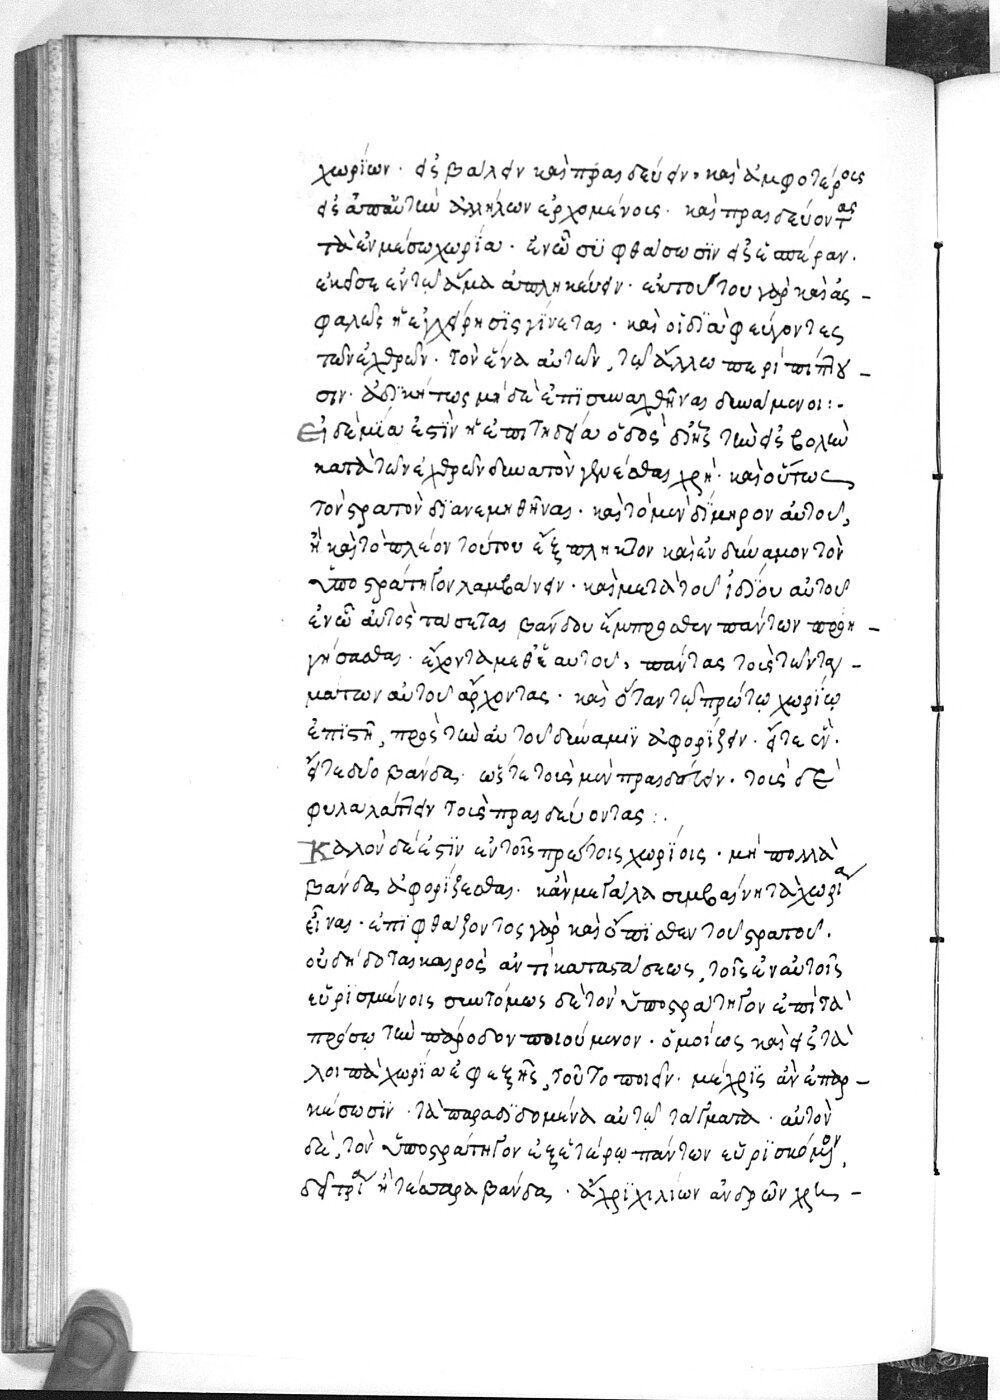 χωρίων· εἰσβαλεῖν καὶ πραιδεύειν, καὶ ἀμφοτέροις
εἰς ἀπαντὴν ἀλλήλων ἐρχομένοις· καὶ πραιδεύοντας
τὰ ἐν μέσω χωρία· ἐν ὧ συφθάσωσϊν εἰς ἑσπέραν·
ἐκεῖσε ἐν τῶ ἅμα ἀπληκεύειν· ἐκ τούτου γὰρ καὶ ἀσ-
φαλῶς ἡ ἐγχείρησϊς γίνεται· καὶ οἱ διαφεύγοντες
τῶν ἐχθρῶν· τὸν ἕνα αὐτῶν, τῶ ἄλλω περιπίπτου-
σιν· ἀδϊκήτως μηδὲ ἐπϊσυναχθῆναι δυνάμενοι:-
Εἰ δὲ μία ἐστὶν ἡ ἐπιτηδεία ὁδὸς δι' ἧς τὴν εἰσβολὴν
κατὰ τῶν ἐχθρῶν δυνατὸν γενέσθαι χρὴ· καὶ οὕτως
τὸν στρατὸν διανεμηθῆναι· καὶ τὸ μὲν δίμηρον αὐτοῦ,
ἢ καὶ τὸ πλέον τούτου ἔξπληκτον καὶ ἐνδύναμον τὸν
ὑποστράτηγον λαμβάνειν· καὶ μετὰ τοῦ ἰδίου αὐτοῦ
ἐν ὧ αὐτὸς τάσεται βάνδου ἔμπροσθεν πάντων προη-
γήσασθαι· ἔχοντα μεθ' ἑαυτοῦ, πάντας τοὺς τῶν ταγ-
μάτων αὐτοῦ ἄρχοντας· καὶ ὅταν τῷ πρώτῳ χωρίῳ
ἐπϊστῆ, πρὸς τὴν αὐτοῦ δύναμϊν ἀφορίζειν· εἴτε ἓν·
εἴτε δύο βάνδα· ὥστε τοὺς μὲν πραιδεύειν· τοὺς δὲ
φυλαλάττειν τοὺς πραιδεύοντας:·
Καλὸν δέ ἐστϊν ἐν τοῖς πρώτοις χωρίοις· μὴ πολλὰ
βάνδα ἀφορίζεσθαι· κἂν μεγάλα συμβαίνη τὰ χωρία
εἶναι· ἐπϊφθάζοντος γὰρ καὶ ὄπϊσθεν τοῦ στρατοῦ·
οὐ δίδοται καιρὸς ἀντικαταστάσεως, τοῖς ἐν αὐτοῖς
εὑρϊσμένοις συντόμως δὲ τὸν ὑποστράτηγον ἐπὶ τὰ
πρόσω τὴν πάροδον ποιούμενον· ὁμοίως καὶ εἰς τὰ
λοιπὰ χωρία ἐφεξῆς, τοῦτο ποιεῖν· μέχρϊς ἂν ἐπαρ-
κέσωσϊν· τὰ παραδϊδόμενα αὐτῶ τάγματα· αὐτὸν
δὲ, τὸν ὑποστράτηγον ἐξ ἑτέρῳ πάντων εὑρϊσκόμενον,
δεῖ τρία ἢ τέσσαρα βάνδα· ἄχρϊ χιλίων ἀνδρῶν χρει-